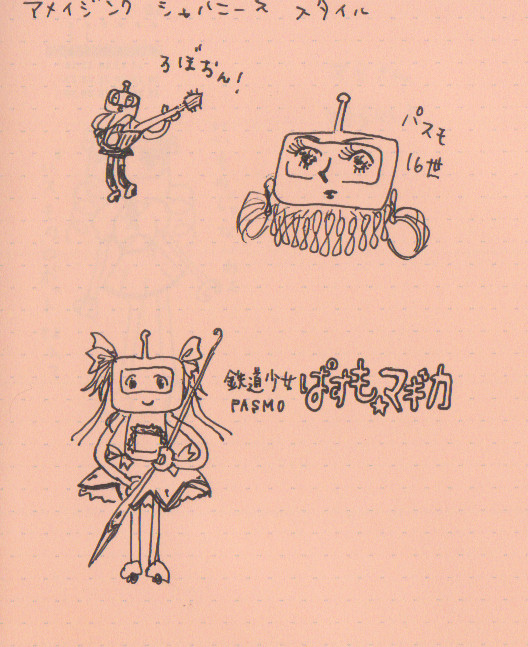 アメイジング ジャパニーズ スタイル
ろぼおん!
パスモ
16世
鉄道少女
PASMO
ぱすも☆マギカ